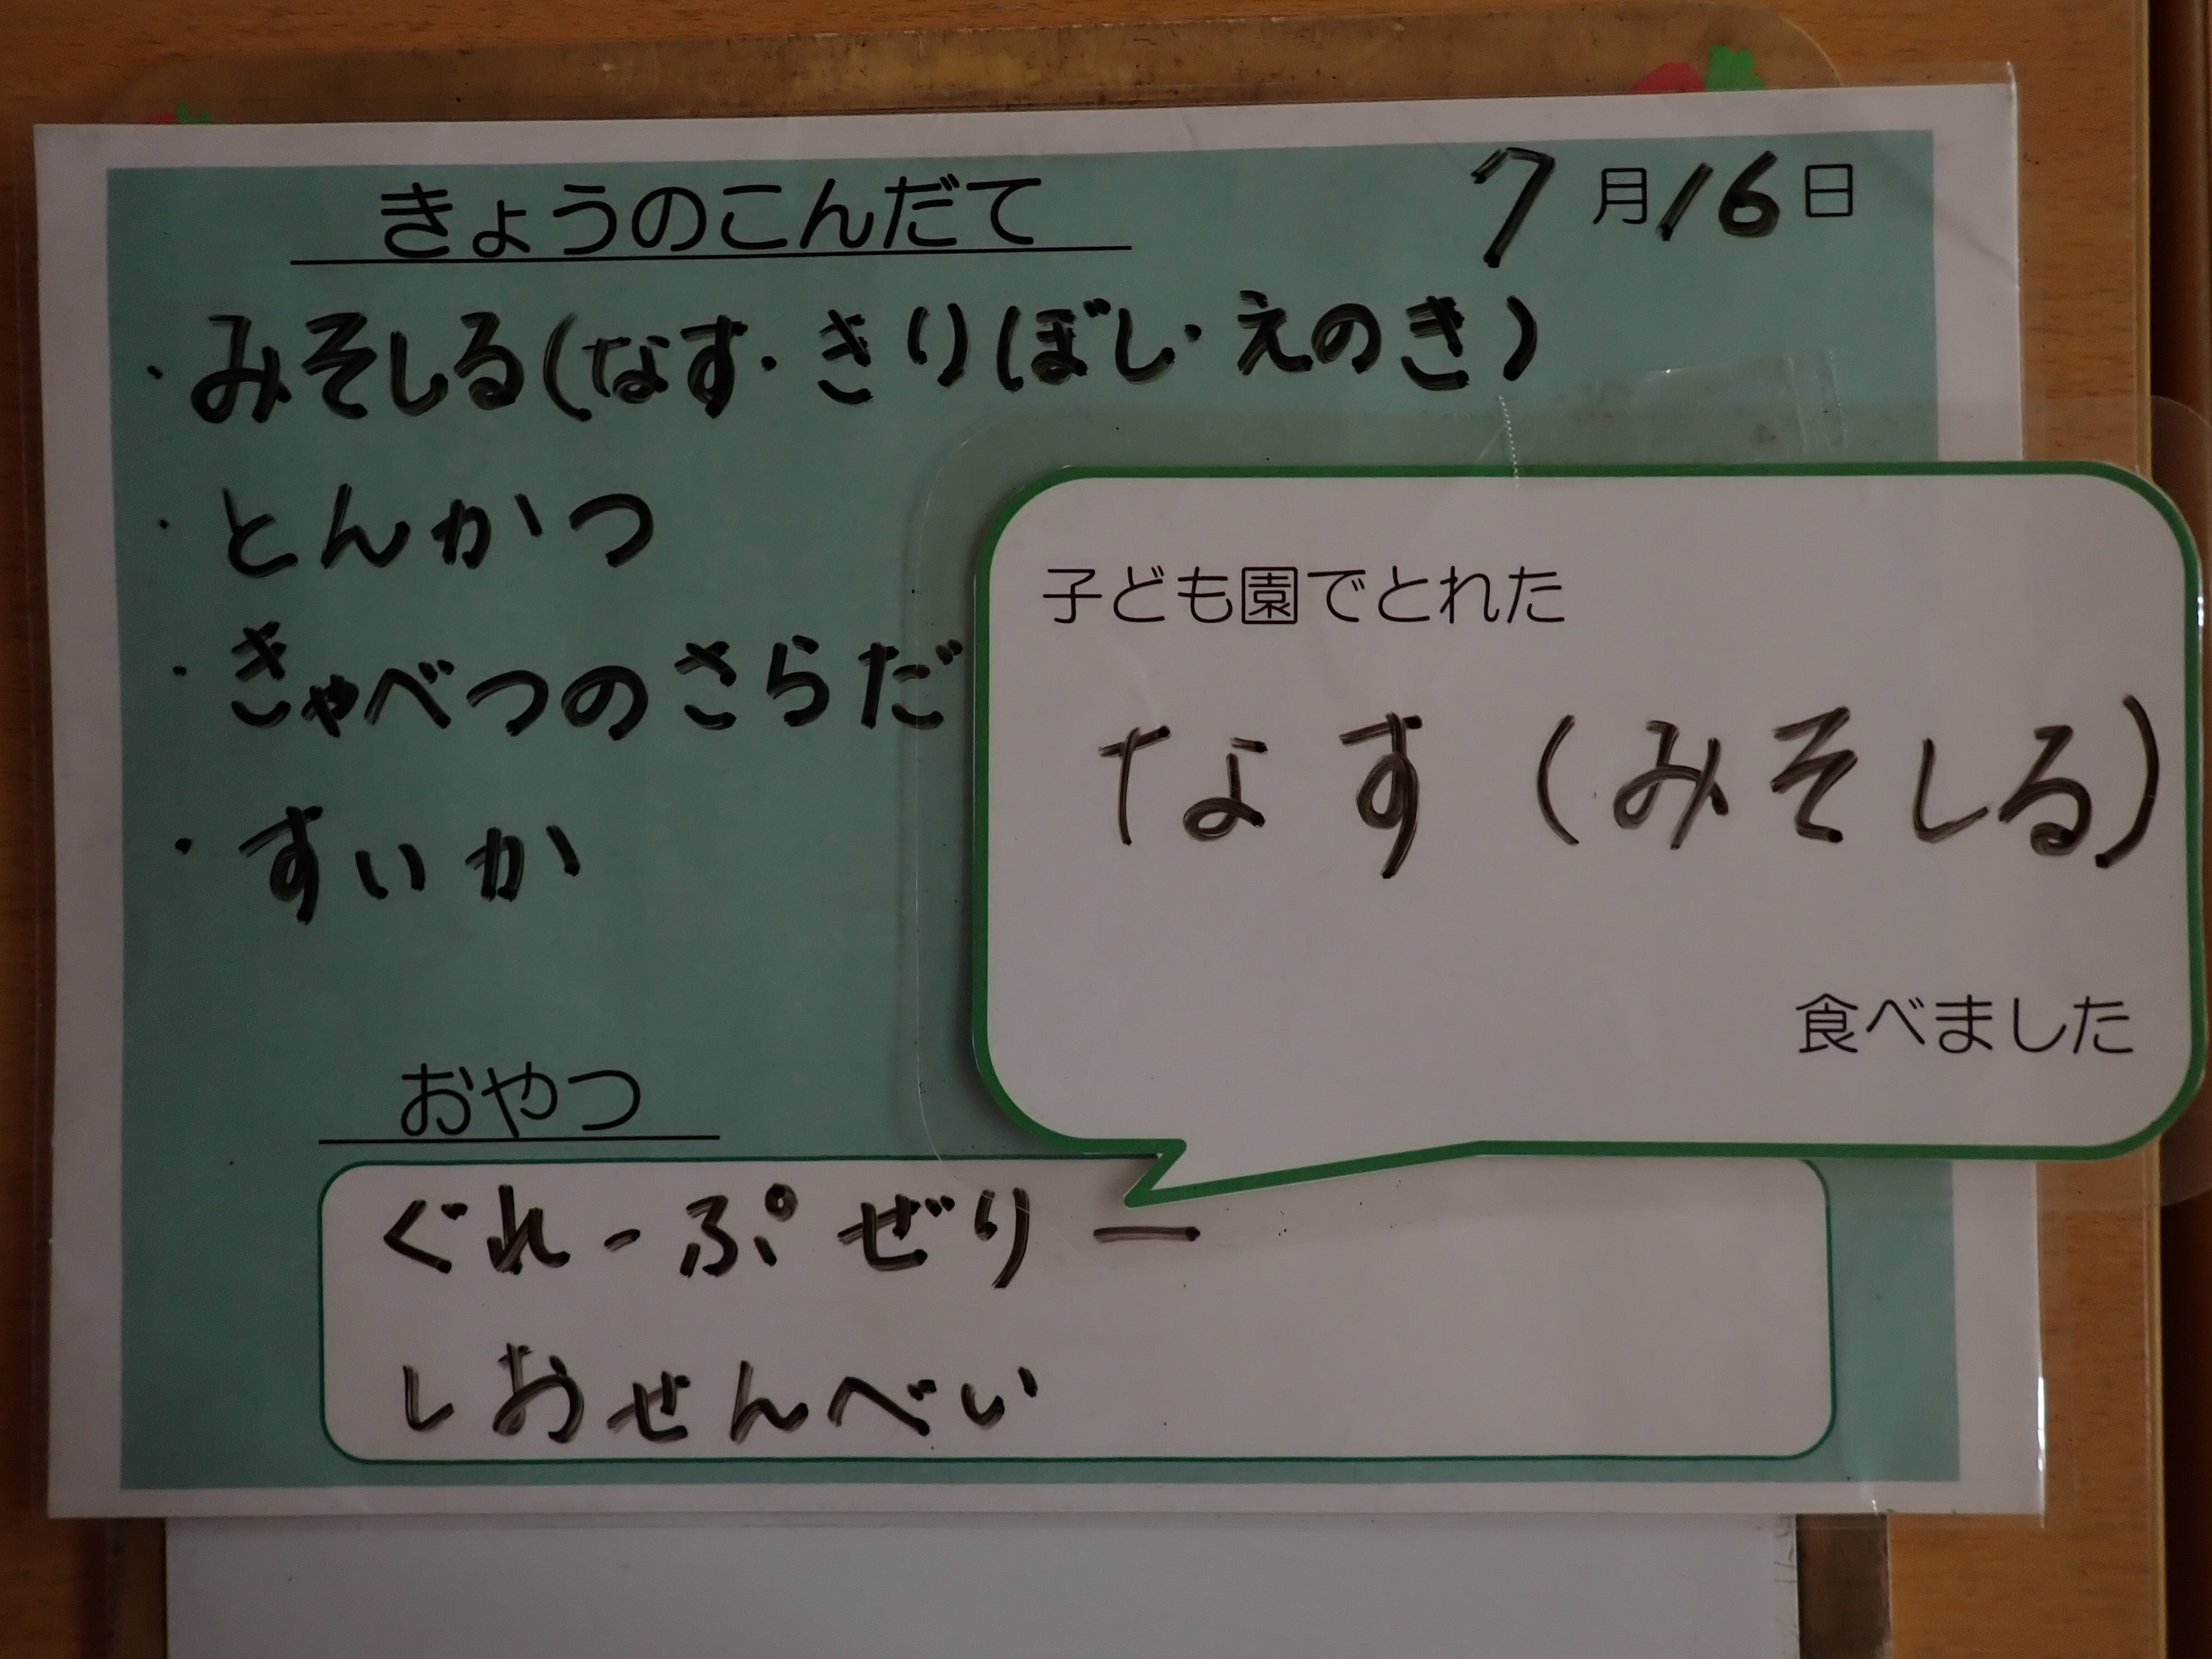 きょうのこんだて
7月16日
・みそしる(なす・きりぼし・えのき)
・とんかつ
・きゃべつのさらだ
・すいか
子ども園でとれた
なす(みそしる)
食べました
おやつ
ぐれーぷぜりー
しおせんべい